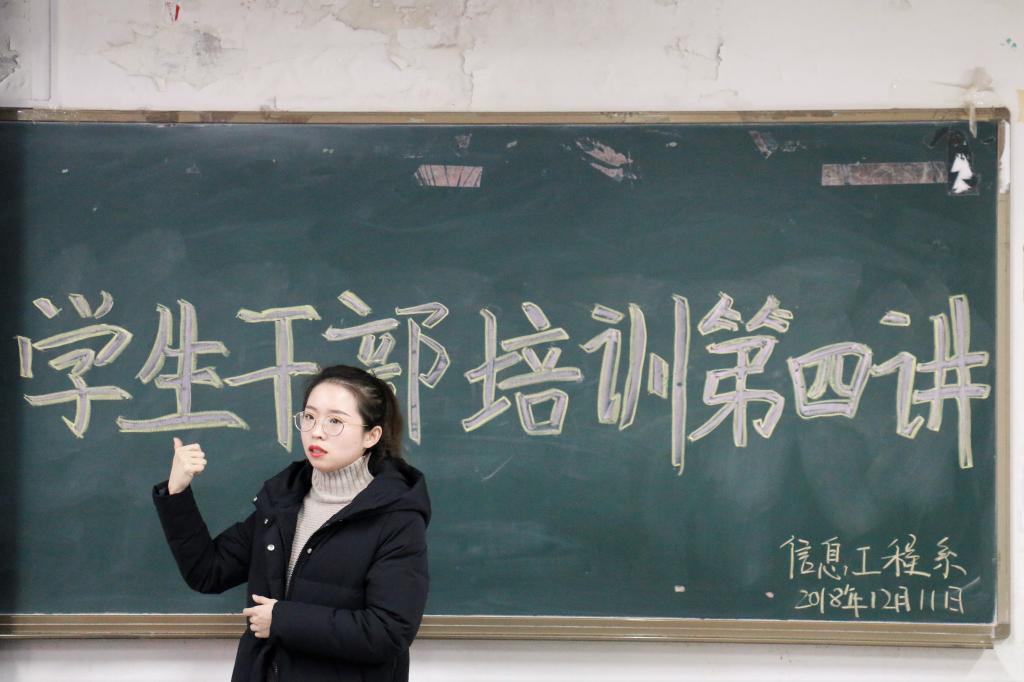 学生干部培训第四讲
信息工程系
2018年12月11日